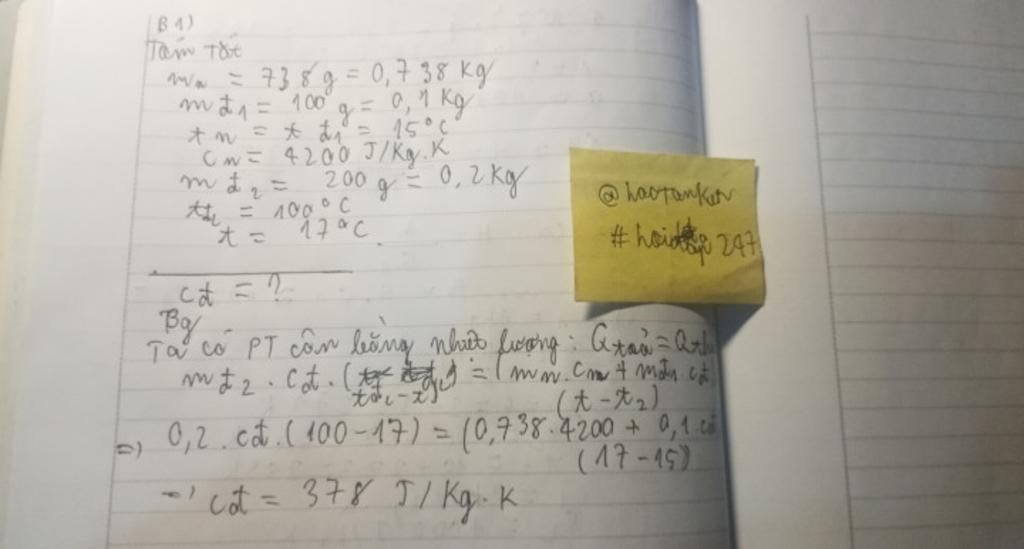 B1)
Tóm tắt
mn = 738g = 0,738 kg
mđ1 = 100g = 0,1 Kg
tn = tđ1 = 15°C
cn = 4200 J/Kg.K
mđ2 = 200g = 0,2 Kg
tđ2 = 100°C
t = 17°C
cđ = ?
Bg
Ta có PT cân bằng nhiệt lượng: Qtoả = Qth
mđ2 . cđ . (tđ2 - t) = (mn . cn + mđ1 . cđ)
(t - t2)
=) 0,2 . cđ . (100 - 17) = (0,738 . 4200 + 0,1 . cđ
(17 - 15)
=) cđ = 378 J/Kg.K
@haotanker
#hoidap247